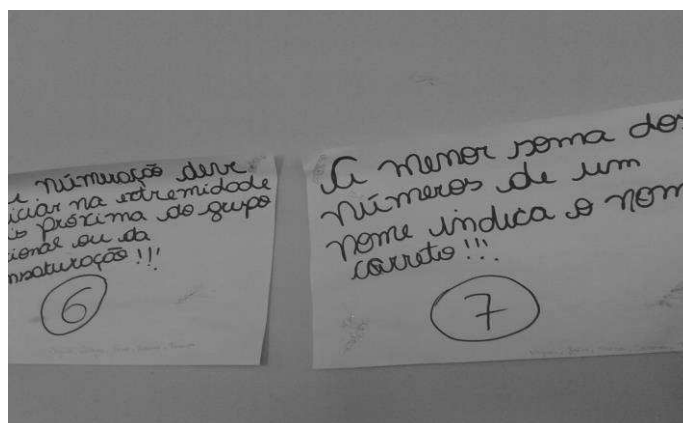 numeração deve
iciar na extremidade
is próxima do grupo
cional ou da
insaturação!!!
6
A menor soma dos
números de um
nome indica o nom
correto!!!
7